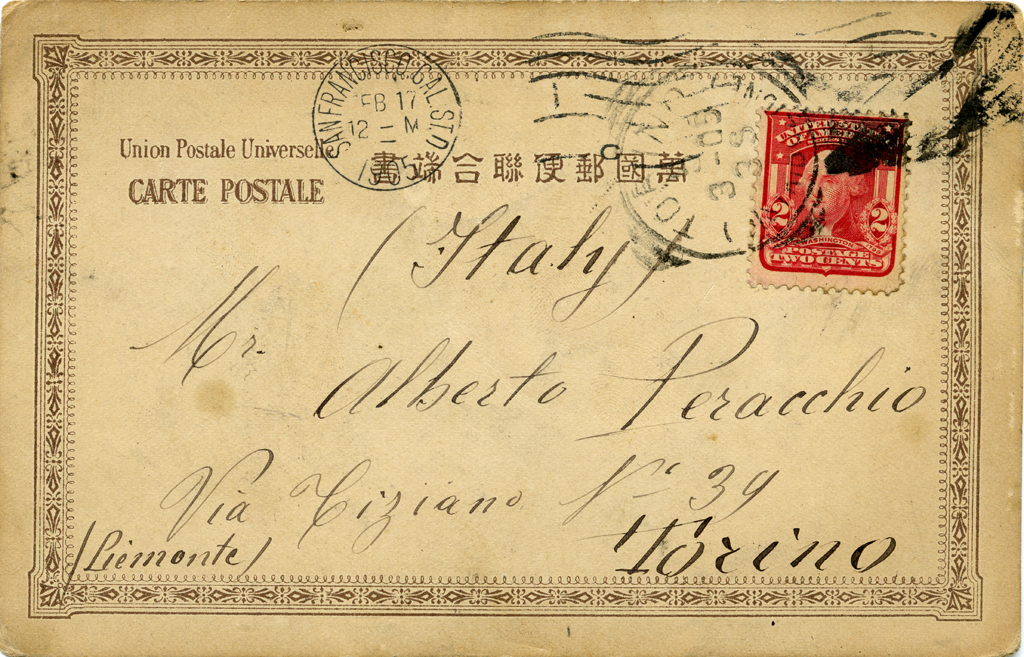 SAN FRANCISCO. CAL. STA. D
FEB 17
12 – M
Union Postale Universelle
CARTE POSTALE
萬國郵便聯合端書
UNITED STATES
OF AMERICA
2 2
WASHINGTON
POSTAGE
TWO CENTS
(Italy)
Mr.
Alberto Peracchio
Via Tiziano N° 39
(Piemonte) Torino